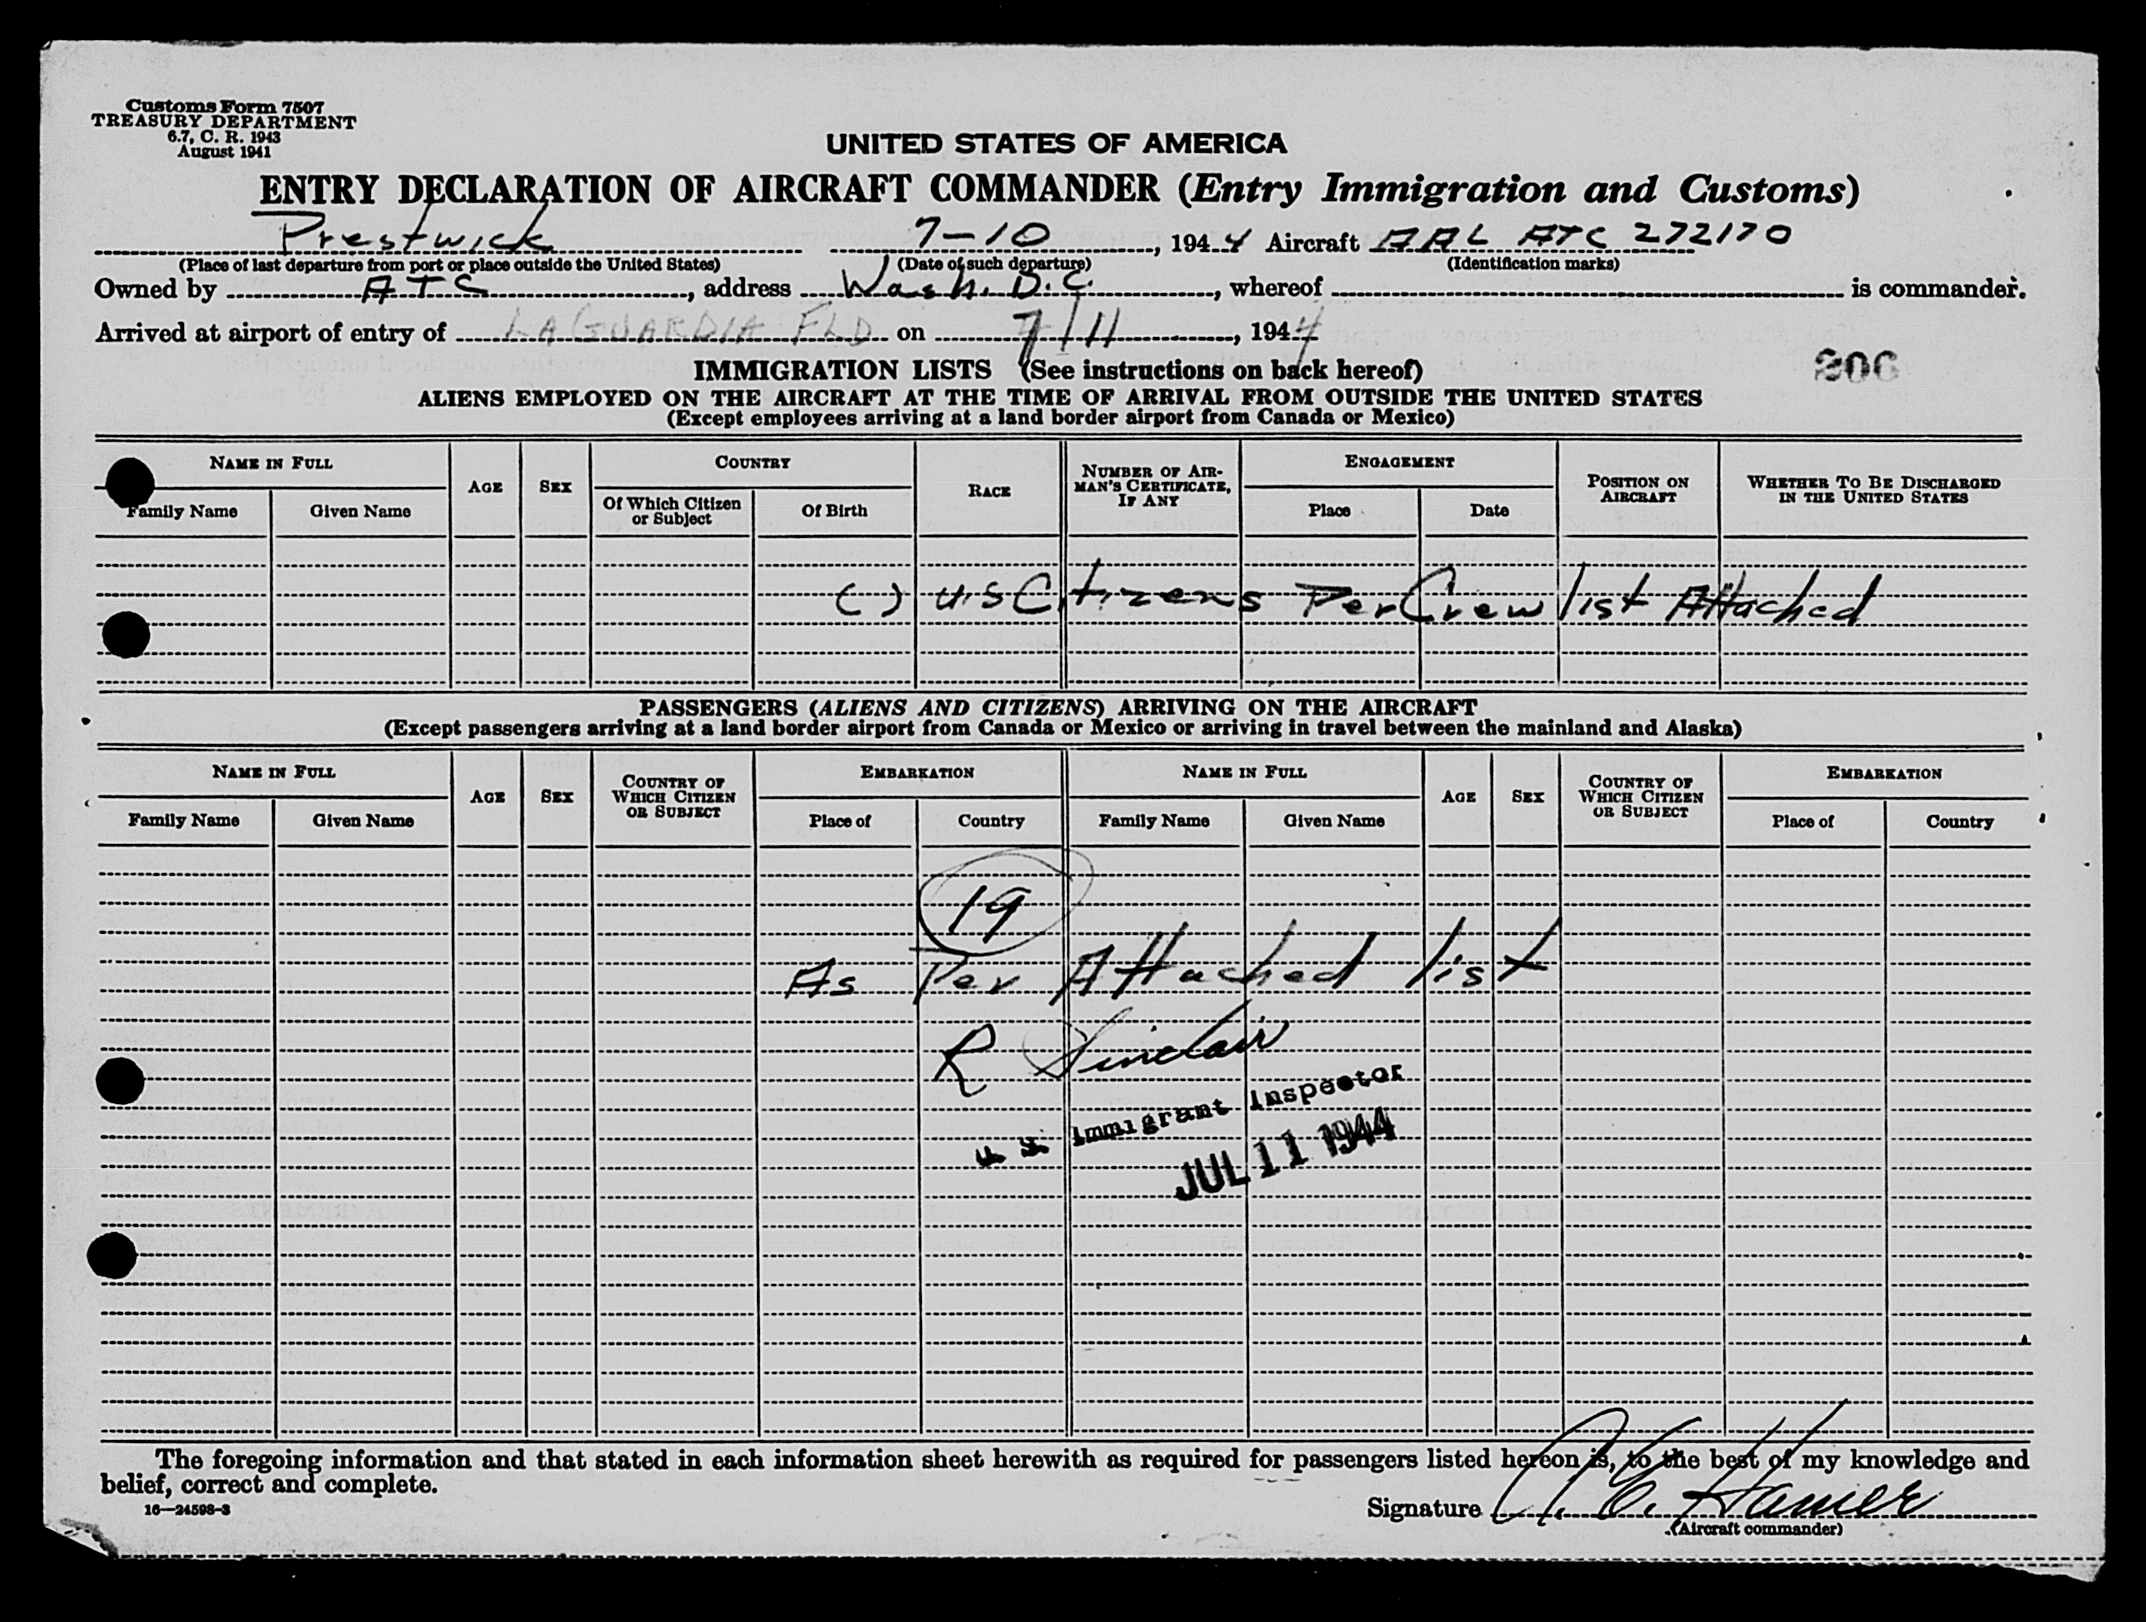 Customs Form 7507
TREASURY DEPARTMENT
6.7, C. R. 1943
August 1941
UNITED STATES OF AMERICA
ENTRY DECLARATION OF AIRCRAFT COMMANDER (Entry Immigration and Customs)
Prestwick 7-10, 1944 Aircraft AAL ATC 272170
(Place of last departure from port or place outside the United States) (Date of such departure) (Identification marks)
Owned by ATC, address Wash. D.C., whereof is commander.
Arrived at airport of entry of LAGUARDIA FLD on 7/11, 1944
IMMIGRATION LISTS (See instructions on back hereof)
306
ALIENS EMPLOYED ON THE AIRCRAFT AT THE TIME OF ARRIVAL FROM OUTSIDE THE UNITED STATES
(Except employees arriving at a land border airport from Canada or Mexico)
NAME IN FULL AGE SEX COUNTRY RACE NUMBER OF AIRMAN'S CERTIFICATE, IF ANY ENGAGEMENT POSITION ON AIRCRAFT WHETHER TO BE DISCHARGED IN THE UNITED STATES
Family Name Given Name Of Which Citizen or Subject Of Birth Place Date
( ) U.S Citizens Per Crew list Attached
PASSENGERS (ALIENS AND CITIZENS) ARRIVING ON THE AIRCRAFT
(Except passengers arriving at a land border airport from Canada or Mexico or arriving in travel between the mainland and Alaska)
NAME IN FULL AGE SEX COUNTRY OF WHICH CITIZEN OR SUBJECT EMBARKATION NAME IN FULL AGE SEX COUNTRY OF WHICH CITIZEN OR SUBJECT EMBARKATION
Family Name Given Name Place of Country Family Name Given Name Place of Country
19
As Per Attached list
R Sinclair
U. S. Immigrant Inspector
JUL 11 1944
The foregoing information and that stated in each information sheet herewith as required for passengers listed hereon is, to the best of my knowledge and
belief, correct and complete.
16—24598-3
Signature Hamer
(Aircraft commander)